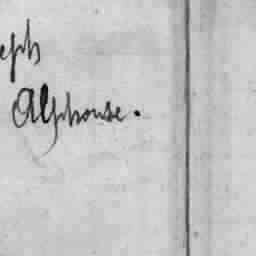 eph
Alphonse.